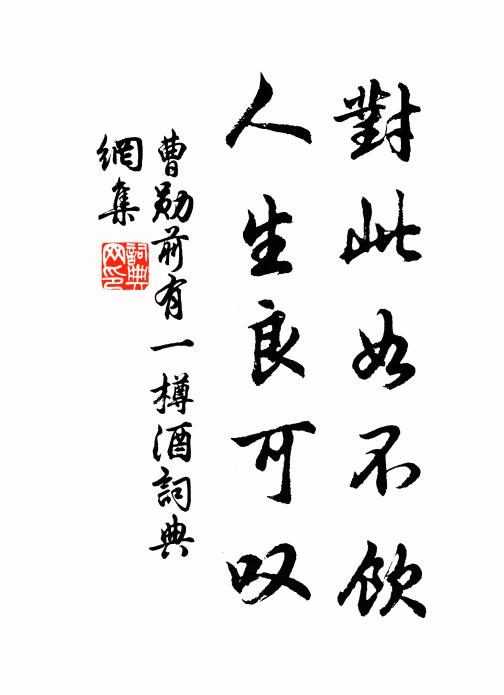 對此如不飲
人生良可叹
曹勛前有一樽酒詞典
網集
詞典
网印